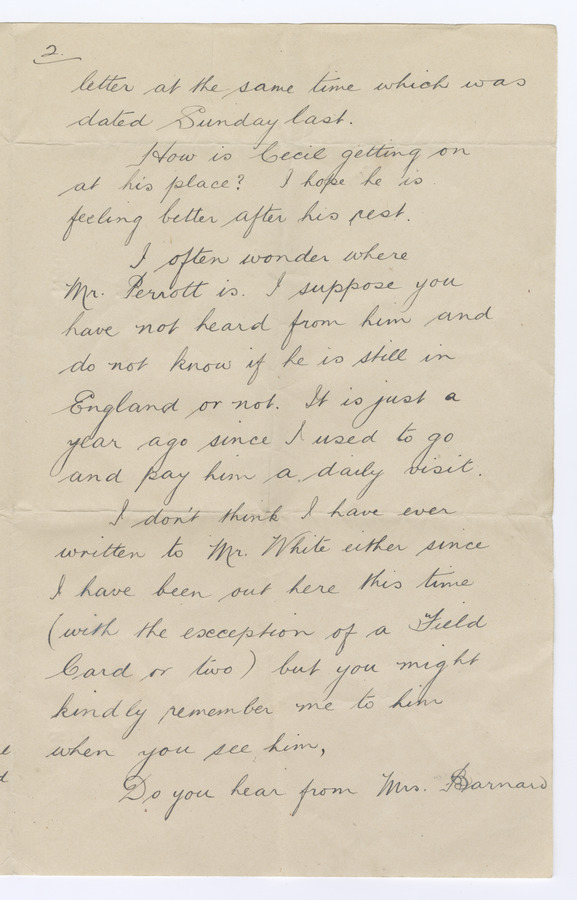 2.
letter at the same time which was
dated Sunday last.
How is Cecil getting on
at his place? I hope he is
feeling better after his rest.
I often wonder where
Mr. Perrott is. I suppose you
have not heard from him and
do not know if he is still in
England or not. It is just a
year ago since I used to go
and pay him a daily visit.
I don't think I have ever
written to Mr. White either since
I have been out here this time
(with the exception of a Field
Card or two) but you might
kindly remember me to him
when you see him,
Do you hear from Mrs. Barnard